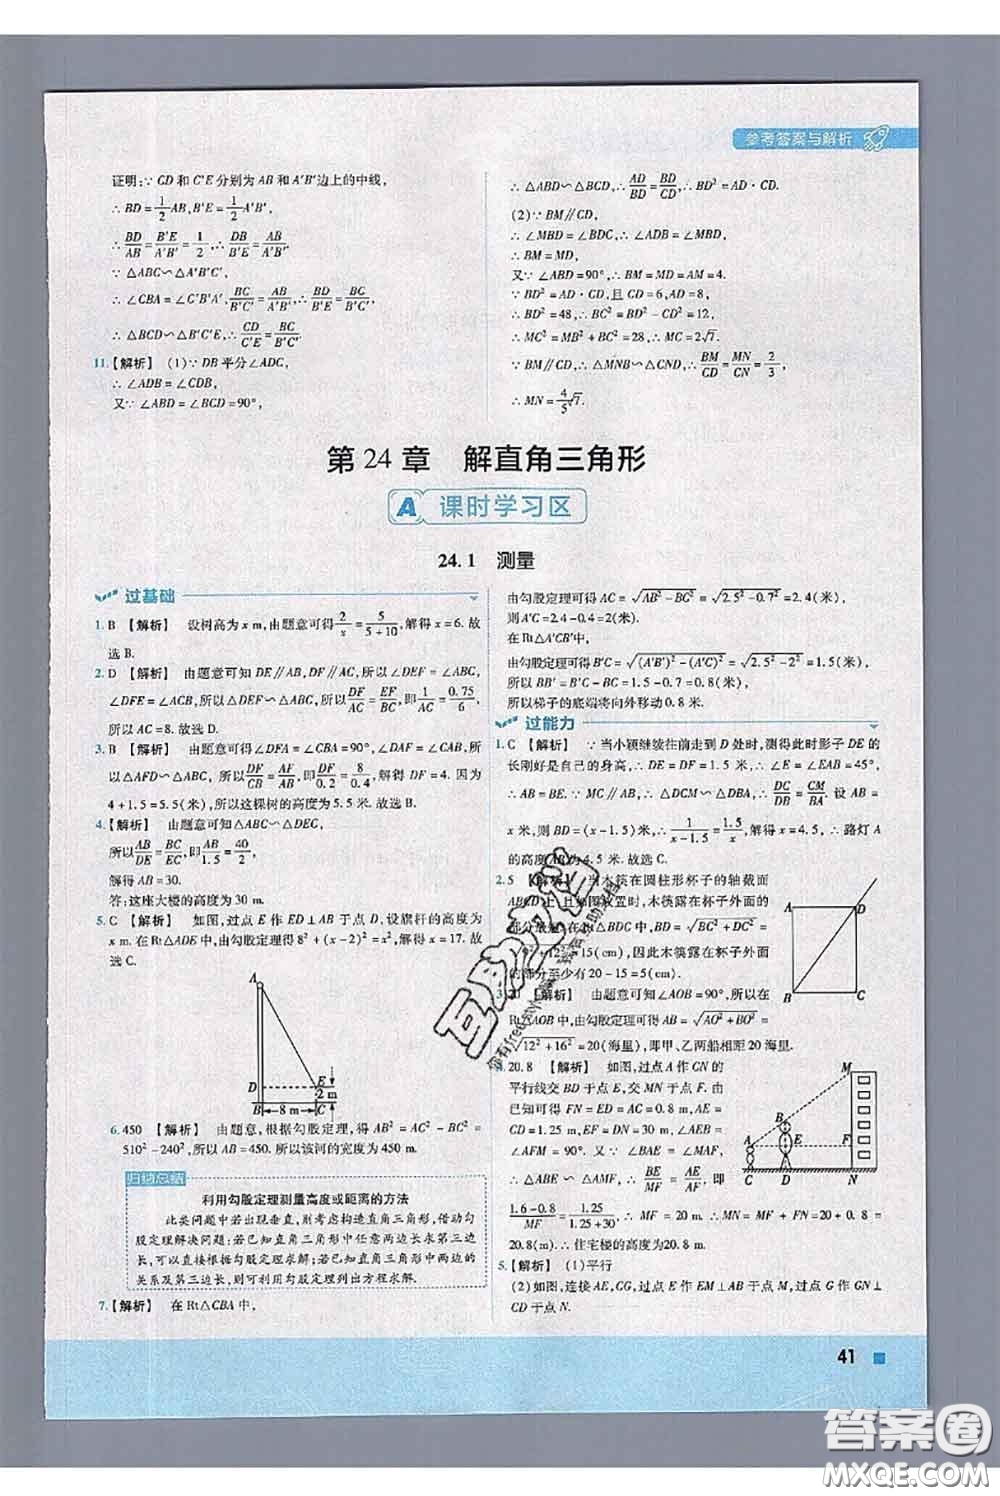 参考答案与解析
证明:∵CD和C'E分别为AB和A'B'边上的中线,
∴BD=1/2AB,B'E=1/2A'B',
∴BD/AB=B'E/A'B'=1/2,∴DB/B'E=AB/A'B'.
∵△ABC∽△A'B'C',
∴∠CBA=∠C'B'A',BC/B'C'=AB/A'B',∴BD/B'E=BC/B'C',
∴△BCD∽△B'C'E,∴CD/C'E=BC/B'C'.
11.【解析】 (1)∵DB平分∠ADC,
∴∠ADB=∠CDB,
又∵∠ABD=∠BCD=90°,
∴△ABD∽△BCD,∴AD/BD=BD/CD,∴BD²=AD·CD.
(2)∵BM∥CD,
∴∠MBD=∠BDC,∴∠ADB=∠MBD,
∴BM=MD,
又∵∠ABD=90°,∴MD=AM=4.
∵BD²=AD·CD,且CD=6,AD=8,
∴BD²=48,∴BC²=BD²-CD²=12,
∴MC²=MB²+BC²=28,∴MC=2√7.
∵BM∥CD,∴△MNB∽△CND,∴BM/CD=MN/CN=2/3,
∴MN=4/5√7.
第24章 解直角三角形
A 课时学习区
24.1 测量
过基础
1.B 【解析】 设树高为x m,由题意可得2/x=5/(5+10),解得x=6.故
选B.
2.D 【解析】 由题意可知DE∥AB,DF∥AC,所以∠DEF=∠ABC,
∠DFE=∠ACB,所以△DEF∽△ABC,所以DF/AC=EF/BC,即1/AC=0.75/6,
所以AC=8.故选D.
3.B 【解析】 由题意可得∠DFA=∠CBA=90°,∠DAF=∠CAB,所
以△AFD∽△ABC,所以DF/CB=AF/AB,即DF/0.2=8/0.4,解得DF=4.因为
4+1.5=5.5(米),所以这棵树的高度为5.5米.故选B.
4.【解析】 由题意可知△ABC∽△DEC,
所以AB/DE=BC/EC,即AB/1.5=40/2,
解得AB=30.
答:这座大楼的高度为30 m.
5.C 【解析】 如图,过点E作ED⊥AB于点D,设旗杆的高度为
x m.在Rt△ADE中,由勾股定理得8²+(x-2)²=x²,解得x=17.故
选C.
A
D
E
2 m
B
8 m
C
6.450 【解析】 由题意,根据勾股定理,得AB²=AC²-BC²=
510²-240²,所以AB=450.所以该河的宽度为450 m.
归纳总结
利用勾股定理测量高度或距离的方法
此类问题中若出现垂直,则考虑构造直角三角形,借助勾
股定理解决问题:若已知直角三角形中任意两边长求第三边
长,可以直接根据勾股定理求解;若已知直角三角形中两边的
关系及第三边长,则可利用勾股定理列出方程求解.
7.【解析】 在Rt△CBA中,
由勾股定理可得AC=√(AB²-BC²)=√(2.5²-0.7²)=2.4(米),
则A'C=2.4-0.4=2(米).
在Rt△A'CB'中,
由勾股定理可得B'C=√((A'B')²-(A'C)²)=√(2.5²-2²)=1.5(米),
所以BB'=B'C-BC=1.5-0.7=0.8(米),
所以梯子的底端将向外移动0.8米.
过能力
1.C 【解析】 ∵当小颖继续往前走到D处时,测得此时影子DE的
长刚好是自己的身高,∴DE=DF=1.5米,∴∠E=∠EAB=45°,
∴AB=BE.∵MC∥AB,∴△DCM∽△DBA,∴DC/DB=CM/BA.设AB=
x米,则BD=(x-1.5)米,∴1/(x-1.5)=1.5/x,解得x=4.5,∴路灯A
的高度AB为4.5米.故选C.
2.5 【解析】 当木筷在圆柱形杯子的轴截面
上,且如图放置时,木筷露在杯子外面的
部分最短,在△BDC中,BD=√(BC²+DC²)=
√(9²+12²)=15(cm),因此木筷露在杯子外面
的部分至少有20-15=5(cm).
A
D
B
C
3.20 【解析】 由题意可知∠AOB=90°,所以在
Rt△AOB中,由勾股定理可得AB=√(AO²+BO²)=
√(12²+16²)=20(海里),即甲、乙两船相距20海里.
4.20.8 【解析】 如图,过点A作CN的
平行线交BD于点E,交MN于点F,由
已知可得FN=ED=AC=0.8 m,AE=
CD=1.25 m,EF=DN=30 m,∠AEB=
∠AFM=90°.又∵∠BAE=∠MAF,
∴△ABE∽△AMF.∴BE/MF=AE/AF,即
(1.6-0.8)/MF=1.25/(1.25+30).∴MF=20 m.∴MN=MF+FN=20+0.8=
20.8(m).∴住宅楼的高度为20.8 m.
M
B
A
E
F
C
D
N
5.【解析】 (1)平行
(2)如图,连接AE,CG,过点E作EM⊥AB于点M,过点G作GN⊥
CD于点N.
41
答案圈
MXQE.COM